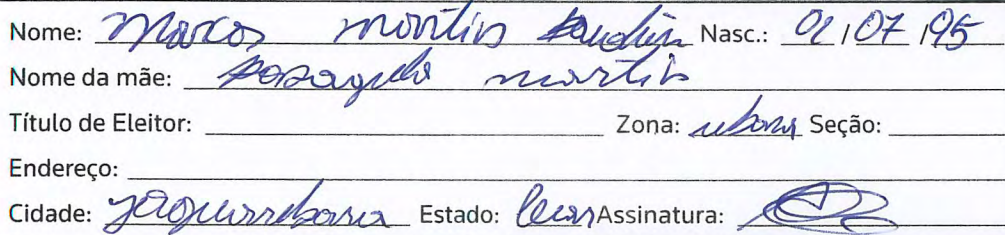 Nome: Marcos Martins Nasc.: 01/07/95
Nome da mãe: martins
Título de Eleitor: Zona: urbana Seção:
Endereço:
Cidade: Estado: Assinatura: